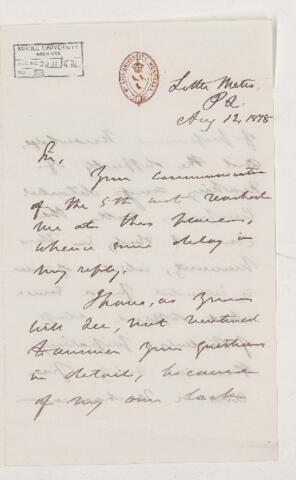 McGILL UNIVERSITY
ARCHIVES
ACC. NO.
Little Metis
P.Q.
Aug 12, 1878
Sir,
Your communication
of the 5th inst reached
me at this place,
whence some delay in
my reply.
I have, as you
will see, not ventured
to answer your questions
in detail, because
of my own lack